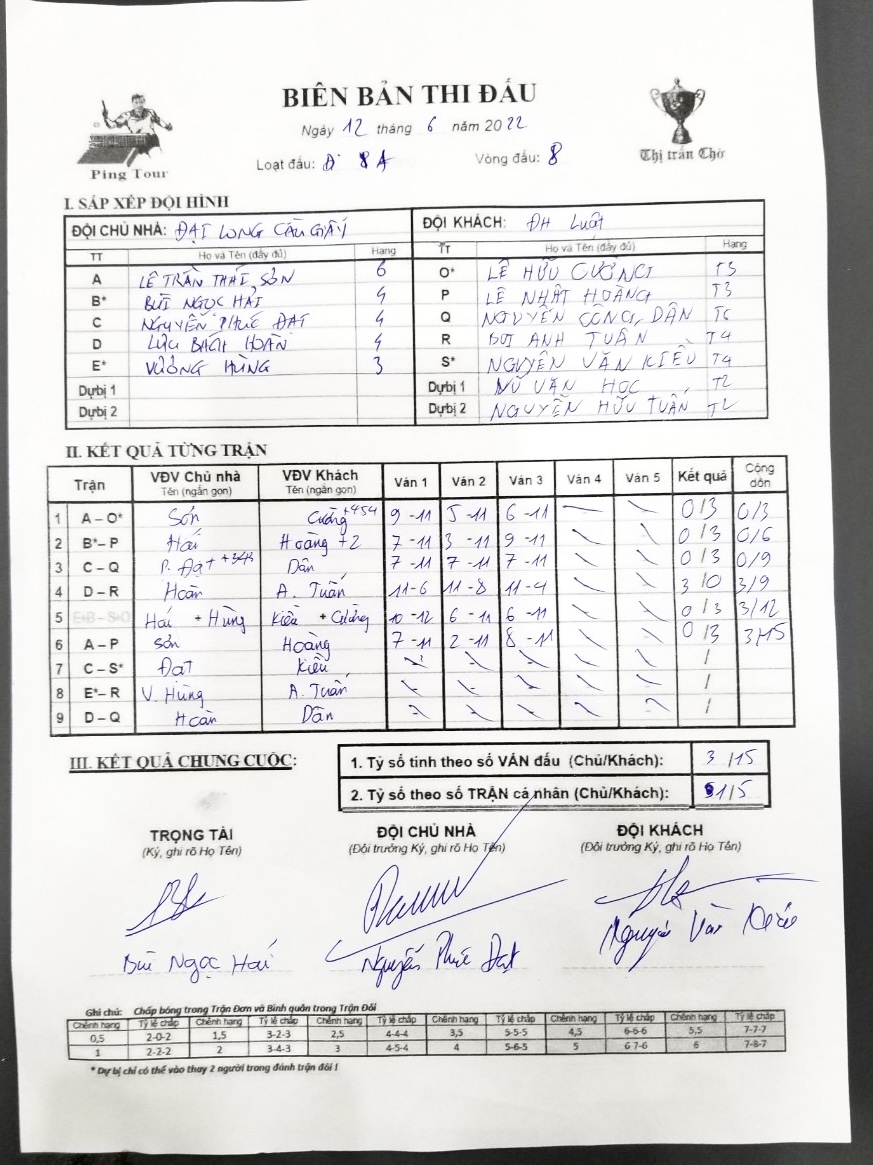 BIÊN BẢN THI ĐẤU
Ngày 12 tháng 6 năm 2022
Ping Tour
Thị trấn Chờ
Loạt đấu: 8A Vòng đấu: 8
I. SẮP XẾP ĐỘI HÌNH
ĐỘI CHỦ NHÀ: ĐẠI LONG CẦU GIẤY ĐỘI KHÁCH: ĐH Luật
TT Họ và Tên (đầy đủ) Hạng TT Họ và Tên (đầy đủ) Hạng
A LÊ TRẦN THÁI SƠN 6 O* LÊ HỮU CƯỜNG T3
B* BÙI NGỌC HẢI 4 P LÊ NHẬT HOÀNG T3
C NGUYỄN PHÚC ĐẠT 4 Q NGUYỄN CÔNG DÂN T6
D LƯU BÁCH HOÀN 4 R BÙI ANH TUẤN T4
E* VƯƠNG HÙNG 3 S* NGUYỄN VĂN KIỀU T4
Dự bị 1 Dự bị 1 VŨ VĂN HỌC T2
Dự bị 2 Dự bị 2 NGUYỄN HỮU TUẤN T2
II. KẾT QUẢ TỪNG TRẬN
Trận VĐV Chủ nhà Tên (ngắn gọn) VĐV Khách Tên (ngắn gọn) Ván 1 Ván 2 Ván 3 Ván 4 Ván 5 Kết quả Cộng dồn
1 A – O* Sơn Cường +454 9-11 5-11 6-11 0/3 0/3
2 B* – P Hải Hoàng +2 7-11 3-11 9-11 0/3 0/6
3 C – Q P. Đạt +343 Dân 7-11 7-11 7-11 0/3 0/9
4 D – R Hoàn A. Tuấn 11-6 11-8 11-4 3/0 3/9
5 E+B – S+O Hải + Hùng Kiều + Cường 10-12 6-11 6-11 0/3 3/12
6 A – P Sơn Hoàng 7-11 2-11 8-11 0/3 3/15
7 C – S* Đạt Kiều /
8 E* – R V. Hùng A. Tuấn /
9 D – Q Hoàn Dân /
III. KẾT QUẢ CHUNG CUỘC:
1. Tỷ số tính theo số VÁN đấu (Chủ/Khách): 3/15
2. Tỷ số theo số TRẬN cá nhân (Chủ/Khách): 1/5
TRỌNG TÀI ĐỘI CHỦ NHÀ ĐỘI KHÁCH
(Ký, ghi rõ Họ Tên) (Đội trưởng Ký, ghi rõ Họ Tên) (Đội trưởng Ký, ghi rõ Họ Tên)
Bùi Ngọc Hải Nguyễn Phúc Đạt Nguyễn Văn Kiều
Ghi chú: Chấp bóng trong Trận Đơn và Bình quân trong Trận Đôi
Chênh hạng Tỷ lệ chấp Chênh hạng Tỷ lệ chấp Chênh hạng Tỷ lệ chấp Chênh hạng Tỷ lệ chấp Chênh hạng Tỷ lệ chấp Chênh hạng Tỷ lệ chấp
0,5 2-0-2 1,5 3-2-3 2,5 4-4-4 3,5 5-5-5 4,5 6-6-6 5,5 7-7-7
1 2-2-2 2 3-4-3 3 4-5-4 4 5-6-5 5 6 7-6 6 7-8-7
* Dự bị chỉ có thể vào thay 2 người trong đánh trận đôi !